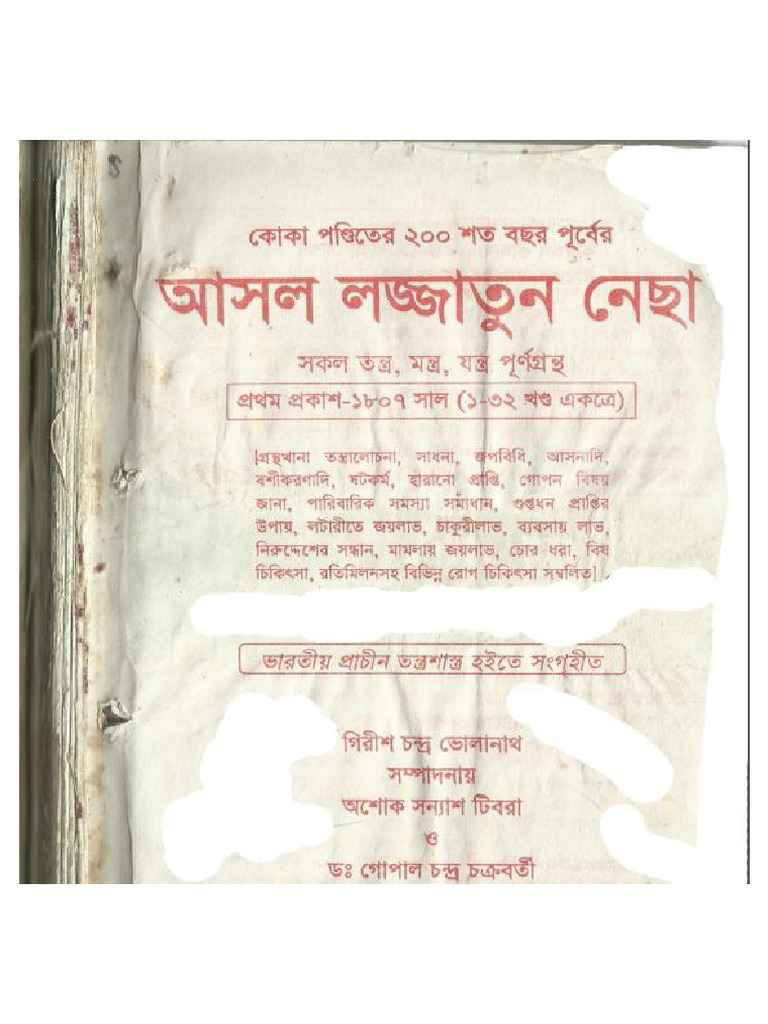 কোকা পণ্ডিতের ২০০ শত বছর পূর্বের
আসল লজ্জাতুন নেছা
সকল তন্ত্র, মন্ত্র, যন্ত্র পূর্ণগ্রন্থ
প্রথম প্রকাশ-১৮০৭ সাল (১-৩২ খণ্ড একত্রে)
[গ্রন্থখানা তন্ত্রালোচনা, সাধনা, জপবিধি, আসনাদি,
বশীকরণাদি, ষটকর্ম, হারানো প্রাপ্তি, গোপন বিষয়
জানা, পারিবারিক সমস্যা সমাধান, গুপ্তধন প্রাপ্তির
উপায়, লটারীতে জয়লাভ, চাকুরীলাভ, ব্যবসায় লাভ,
নিরুদ্দেশের সন্ধান, মামলায় জয়লাভ, চোর ধরা, বিষ
চিকিৎসা, রতিমিলনসহ বিভিন্ন রোগ চিকিৎসা সম্বলিত]
ভারতীয় প্রাচীন তন্ত্রশাস্ত্র হইতে সংগৃহীত
গিরীশ চন্দ্র ভোলানাথ
সম্পাদনায়
অশোক সন্যাশ টিবরা
ও
ডঃ গোপাল চন্দ্র চক্রবর্তী